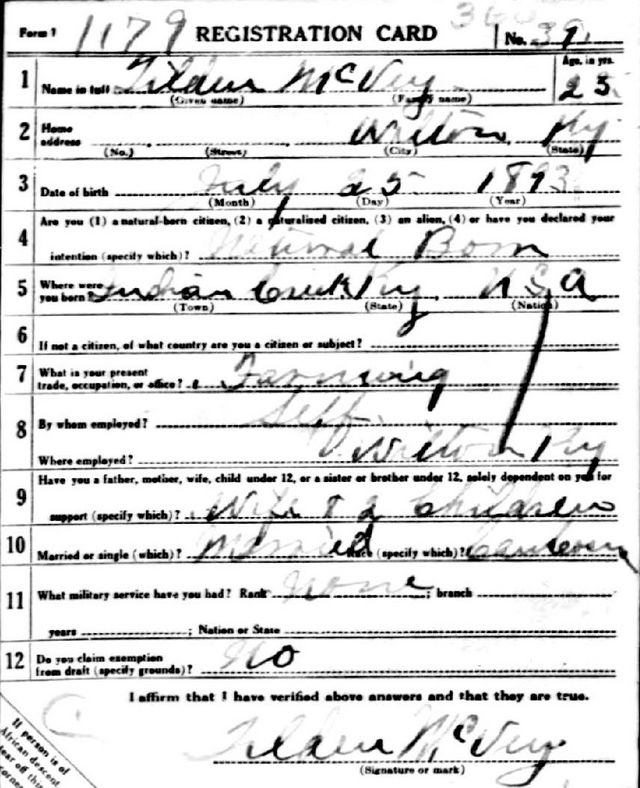 Form 1 1179 REGISTRATION CARD No. 39
1 Name in full Tilden McVey Age, in yrs.
(Given name) (Family name) 23
2 Home address Wilton, Ky
(No.) (Street) (City) (State)
3 Date of birth July 25 1893
(Month) (Day) (Year)
Are you (1) a natural-born citizen, (2) a naturalized citizen, (3) an alien, (4) or have you declared your
4 intention (specify which)? Natural Born
5 Where were you born? Indian Creek Ky, USA
(Town) (State) (Nation)
6 If not a citizen, of what country are you a citizen or subject?
7 What is your present trade, occupation, or office? Farming
8 By whom employed? Self
Where employed? Wilton Ky
Have you a father, mother, wife, child under 12, or a sister or brother under 12, solely dependent on you for
9 support (specify which)? Wife & 2 Children
10 Married or single (which)? Married Race (specify which)? Caucasian
11 What military service have you had? Rank None; branch
years ; Nation or State
12 Do you claim exemption from draft (specify grounds)? No
I affirm that I have verified above answers and that they are true.
Tilden McVey
(Signature or mark)
If person is of
African descent
tear off this
corner